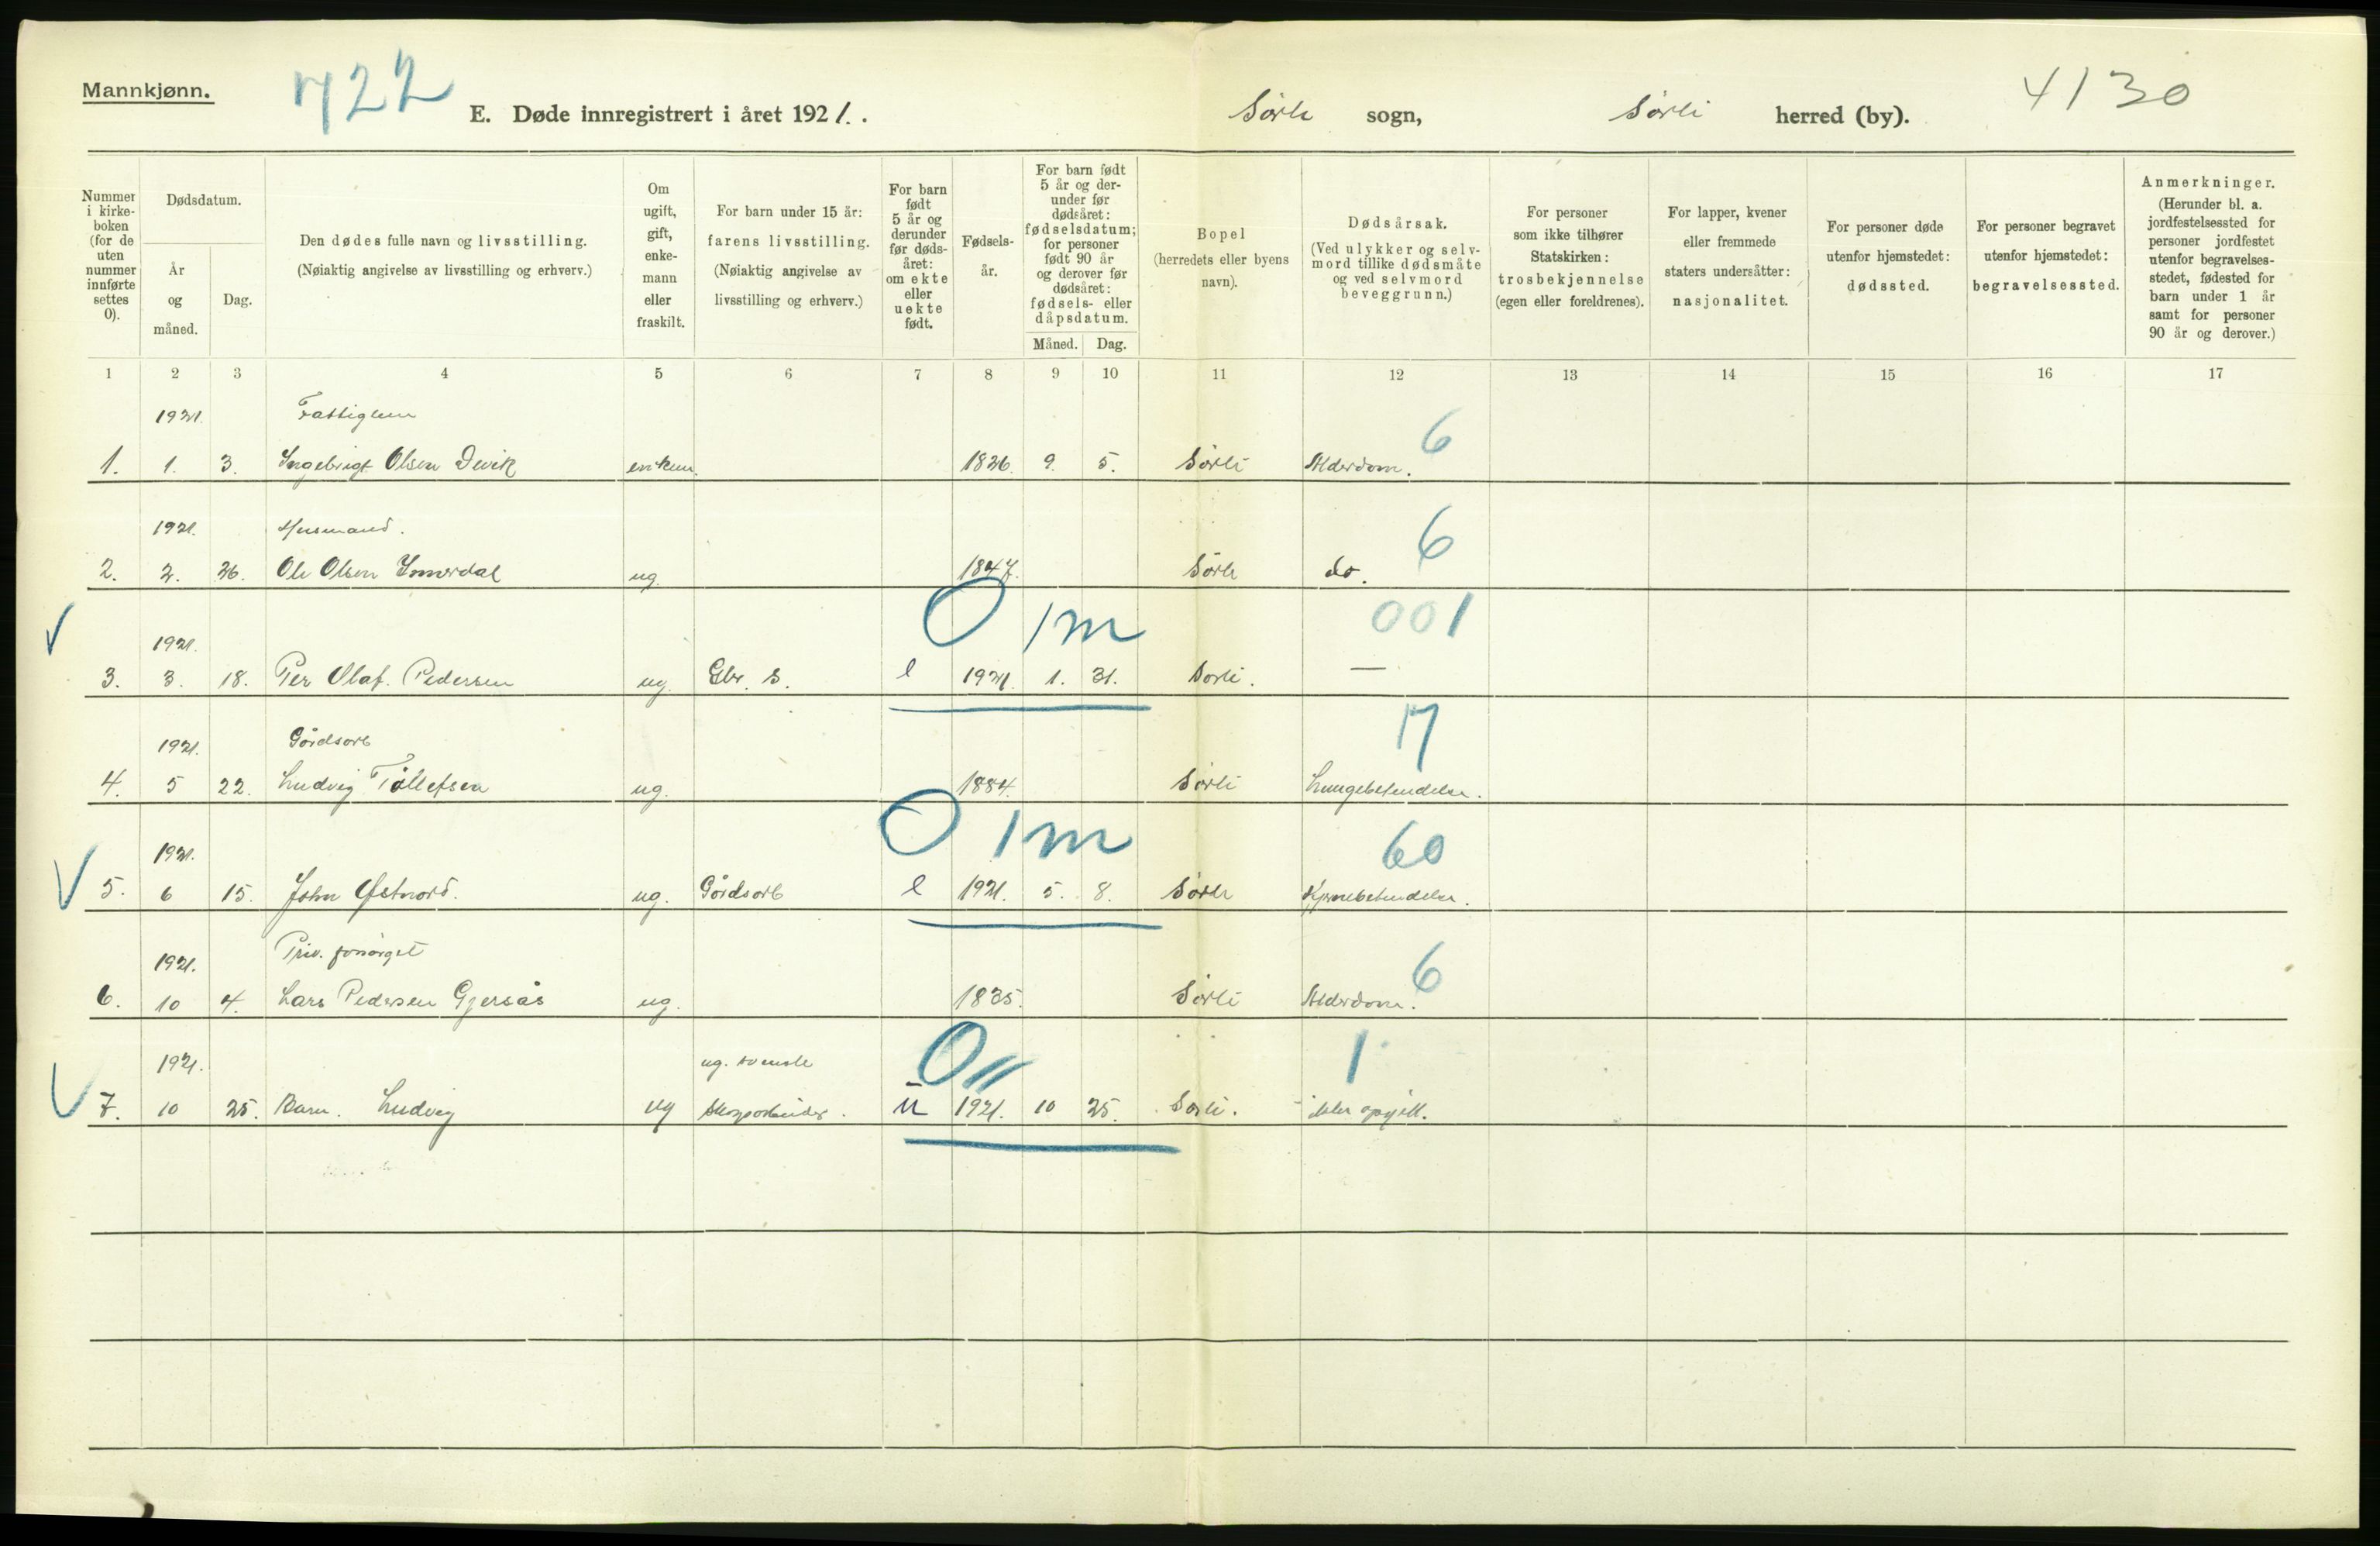 Mannkjønn.
722
E. Døde innregistrert i året 1921. .
Sørli sogn,
Sørli herred (by).
4130
Nummer i kirkeboken (for de uten nummer innførte settes 0).
Dødsdatum.
År og måned.
Dag.
Den dødes fulle navn og livsstilling.
(Nøiaktig angivelse av livsstilling og erhverv.)
Om ugift, gift, enkemann eller fraskilt.
For barn under 15 år: farens livsstilling.
(Nøiaktig angivelse av livsstilling og erhverv.)
For barn født 5 år og derunder før dødsåret: om ekte eller uekte født.
Fødselsår.
For barn født 5 år og derunder før dødsåret: fødselsdatum; for personer født 90 år og derover før dødsåret: fødsels- eller dåpsdatum.
Måned. Dag.
Bopel (herredets eller byens navn).
Dødsårsak.
(Ved ulykker og selvmord tillike dødsmåte og ved selvmord beveggrunn.)
For personer som ikke tilhører Statskirken: trosbekjennelse (egen eller foreldrenes).
For lapper, kvener eller fremmede staters undersåtter: nasjonalitet.
For personer døde utenfor hjemstedet: dødssted.
For personer begravet utenfor hjemstedet: begravelsessted.
Anmerkninger.
(Herunder bl. a. jordfestelsessted for personer jordfestet utenfor begravelsesstedet, fødested for barn under 1 år samt for personer 90 år og derover.)
1 2 3 4 5 6 7 8 9 10 11 12 13 14 15 16 17
1921. Fattiglem 6
1. 1. 3. Ingebrigt Olsen Devik enkem. 1826. 9. 5. Sørli Alderdom.
1921. Husmand. 6
2. 2. 26. Ole Olsen Inderdal ug. 1847. Sørli do.
1921. 0 1m 001
3. 3. 18. Per Olaf. Pedersen ug. Gbr. S. e 1921. 1. 31. Sørli. —
1921. Gårdsarb 17
4. 5 22. Ludvig Tollefsen ug. 1884. Sørli Lungebetendelse.
1921. 0 1m 60
5. 6 15. John Østnord. ug. Gårdsarb e 1921. 5. 8. Sørli
1921. Priv. forsørget 6
6. 10 4. Lars Pedersen Gjersås ug. 1835. Sørli Alderdom.
1921. ug. svensk 0 11 1
7. 10 25. Barn. Ludvig ug Skogsarbeider. u 1921. 10 25. Sørli. ikke opgitt.